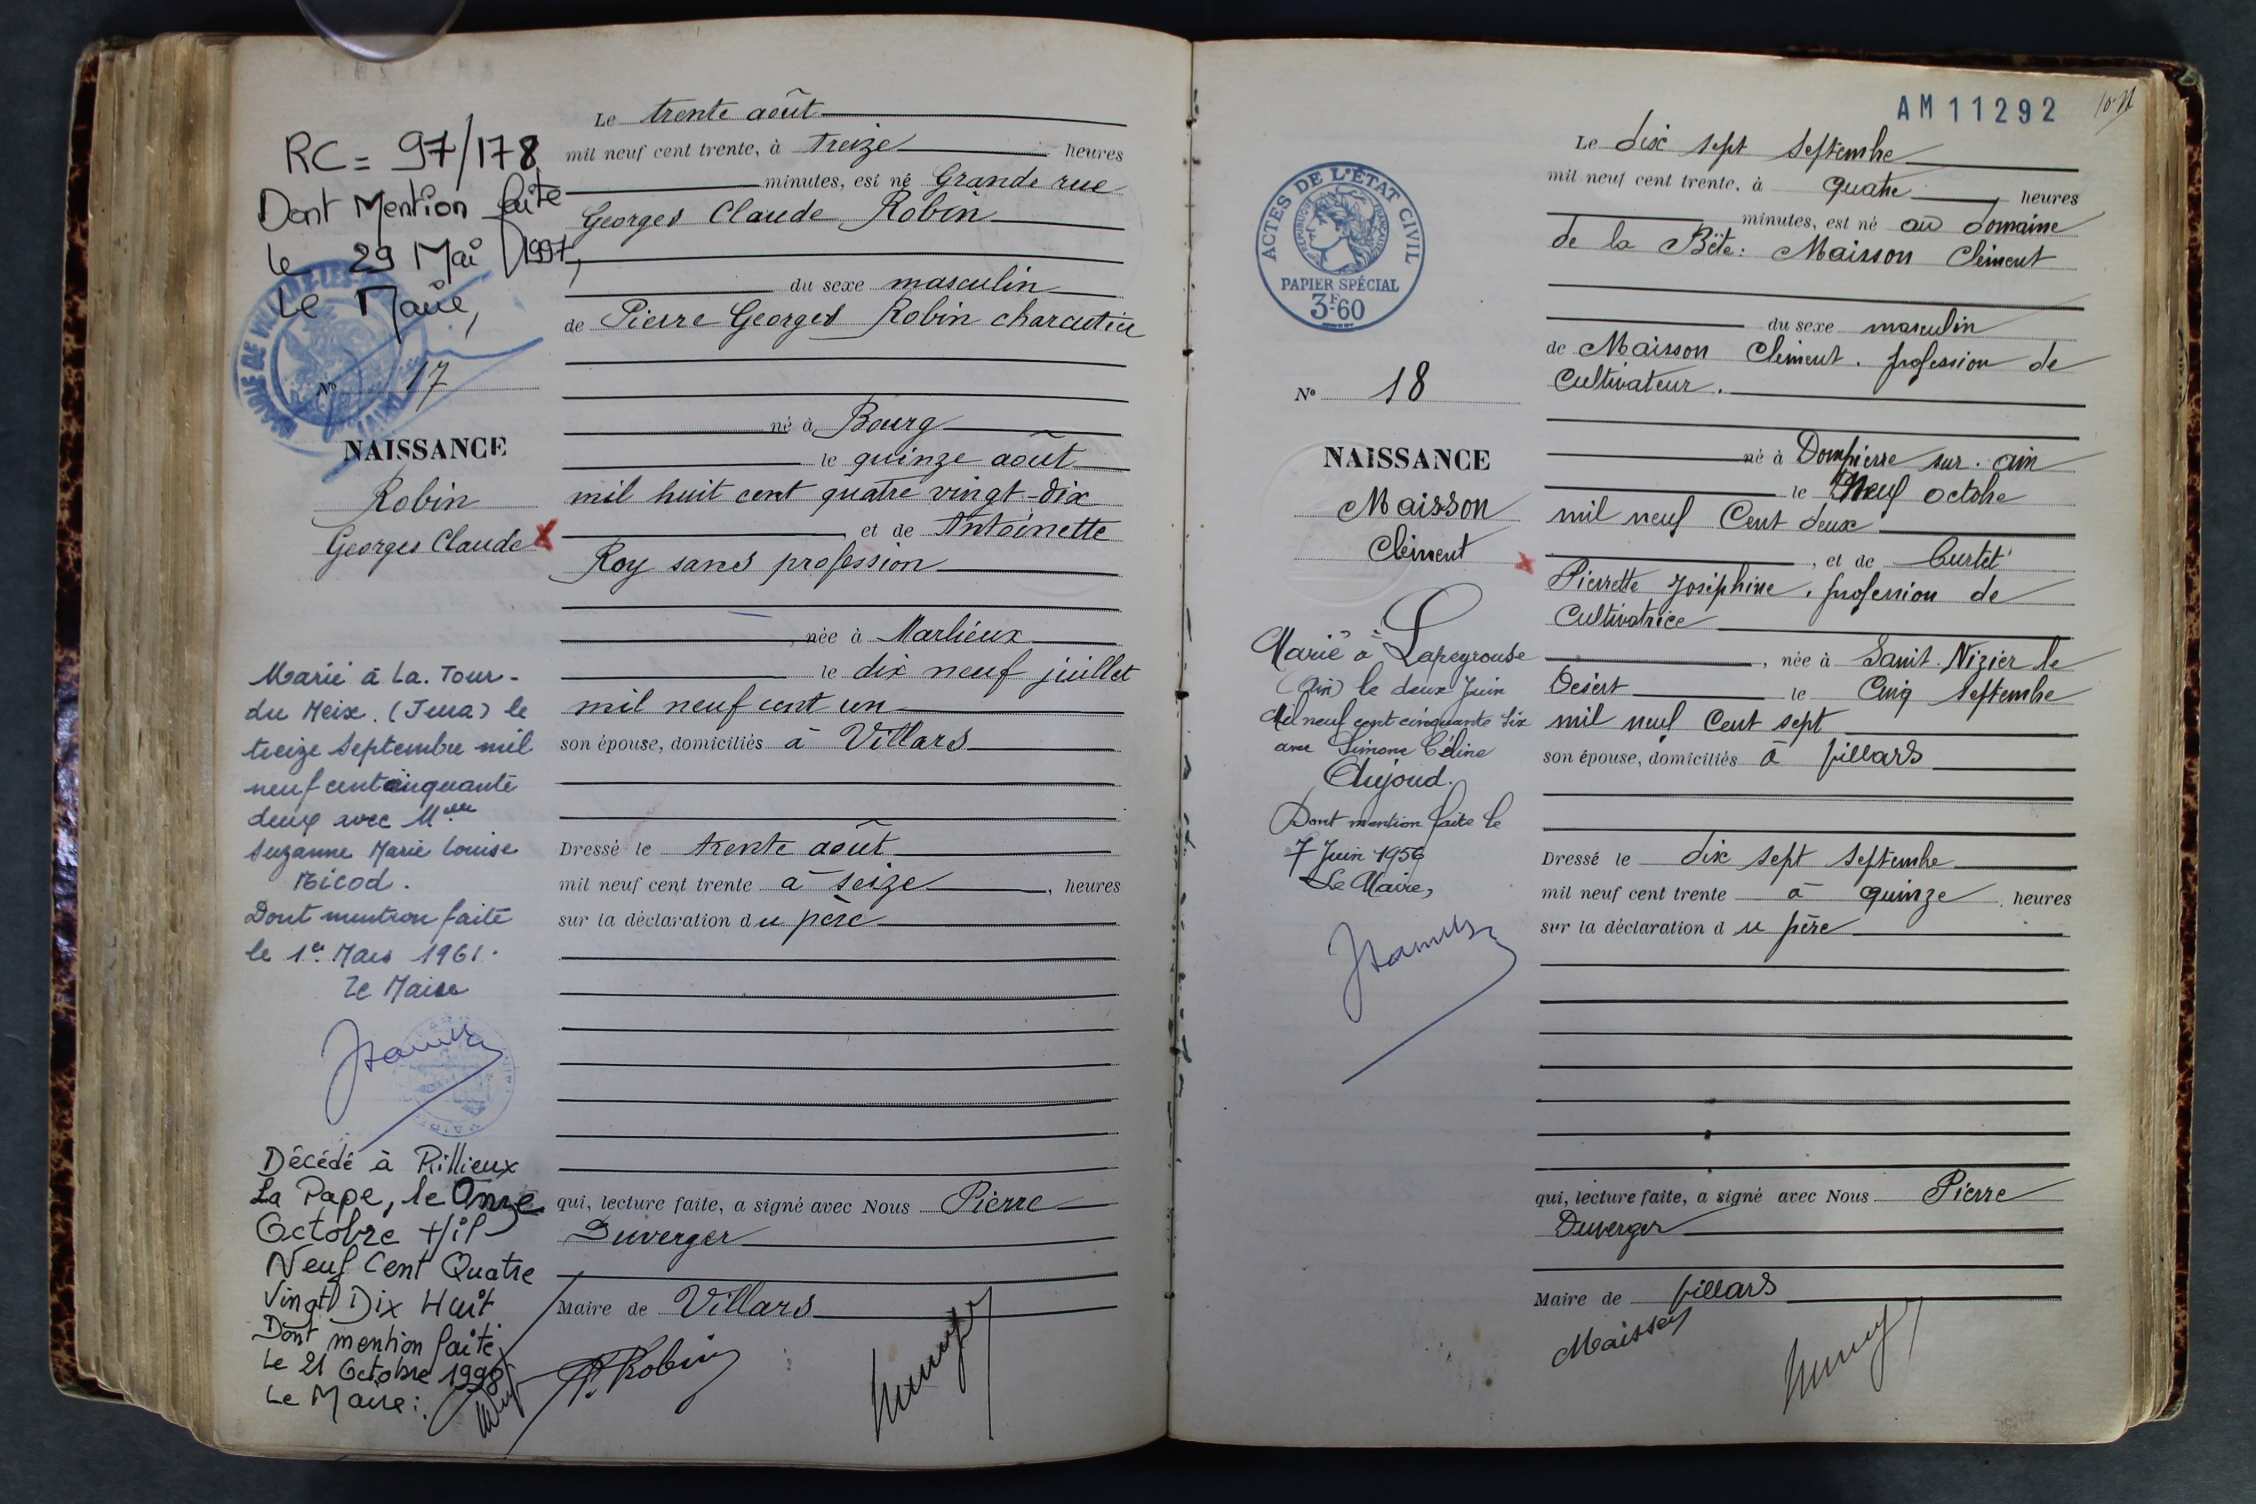 RC = 97/178
Dont Mention faite
le 29 Mai 1997,
Le Maire,
N° 17
NAISSANCE
Robin
Georges Claude
Marié à La Tour-
du Meix. (Jura) le
treize Septembre mil
neuf cent cinquante
deux avec Melle
Suzanne Marie Louise
Micod.
Dont mention faite
le 1er Mars 1961.
Le Maire
Décédé à Rillieux
La Pape, le Onze
Octobre Mil
Neuf Cent Quatre
Vingt Dix Huit
Dont mention faite
Le 21 Octobre 1998
Le Maire :
Le trente août
mil neuf cent trente, à treize heures
minutes, est né Grande rue
Georges Claude Robin
du sexe masculin
de Pierre Georges Robin charcutier
né à Bourg
le quinze août
mil huit cent quatre vingt-dix
et de Antoinette
Roy sans profession
, née à Marlieux
le dix neuf juillet
mil neuf cent un
son épouse, domiciliés à Villars
Dressé le trente août
mil neuf cent trente à seize , heures
sur la déclaration du père
qui, lecture faite, a signé avec Nous Pierre
Duverger
Maire de Villars
P. Robin
AM11292
ACTES DE L'ÉTAT CIVIL
RÉPUBLIQUE FRANÇAISE
PAPIER SPÉCIAL
3F.60
N° 18
NAISSANCE
Maisson
Clément
Marié à Lapeyrouse
(Ain) le deux Juin
Mil neuf cent cinquante six
avec Simone Céline
Aujoud.
Dont mention faite le
7 Juin 1956
Le Maire,
Le dix sept septembre
mil neuf cent trente, à quatre heures
minutes, est né au domaine
de la Bête : Maisson Clément
du sexe masculin
de Maisson Clément . profession de
Cultivateur .
né à Dompierre sur . ain
le Neuf octobre
mil neuf Cent deux
, et de Curtet
Pierrette Joséphine . profession de
Cultivatrice
, née à Saint . Nizier le
Désert le Cinq septembre
mil neuf Cent sept
son épouse, domiciliés à Villars
Dressé le dix sept septembre
mil neuf cent trente à quinze , heures
sur la déclaration du père
qui, lecture faite, a signé avec Nous Pierre
Duverger
Maire de Villars
Maisson